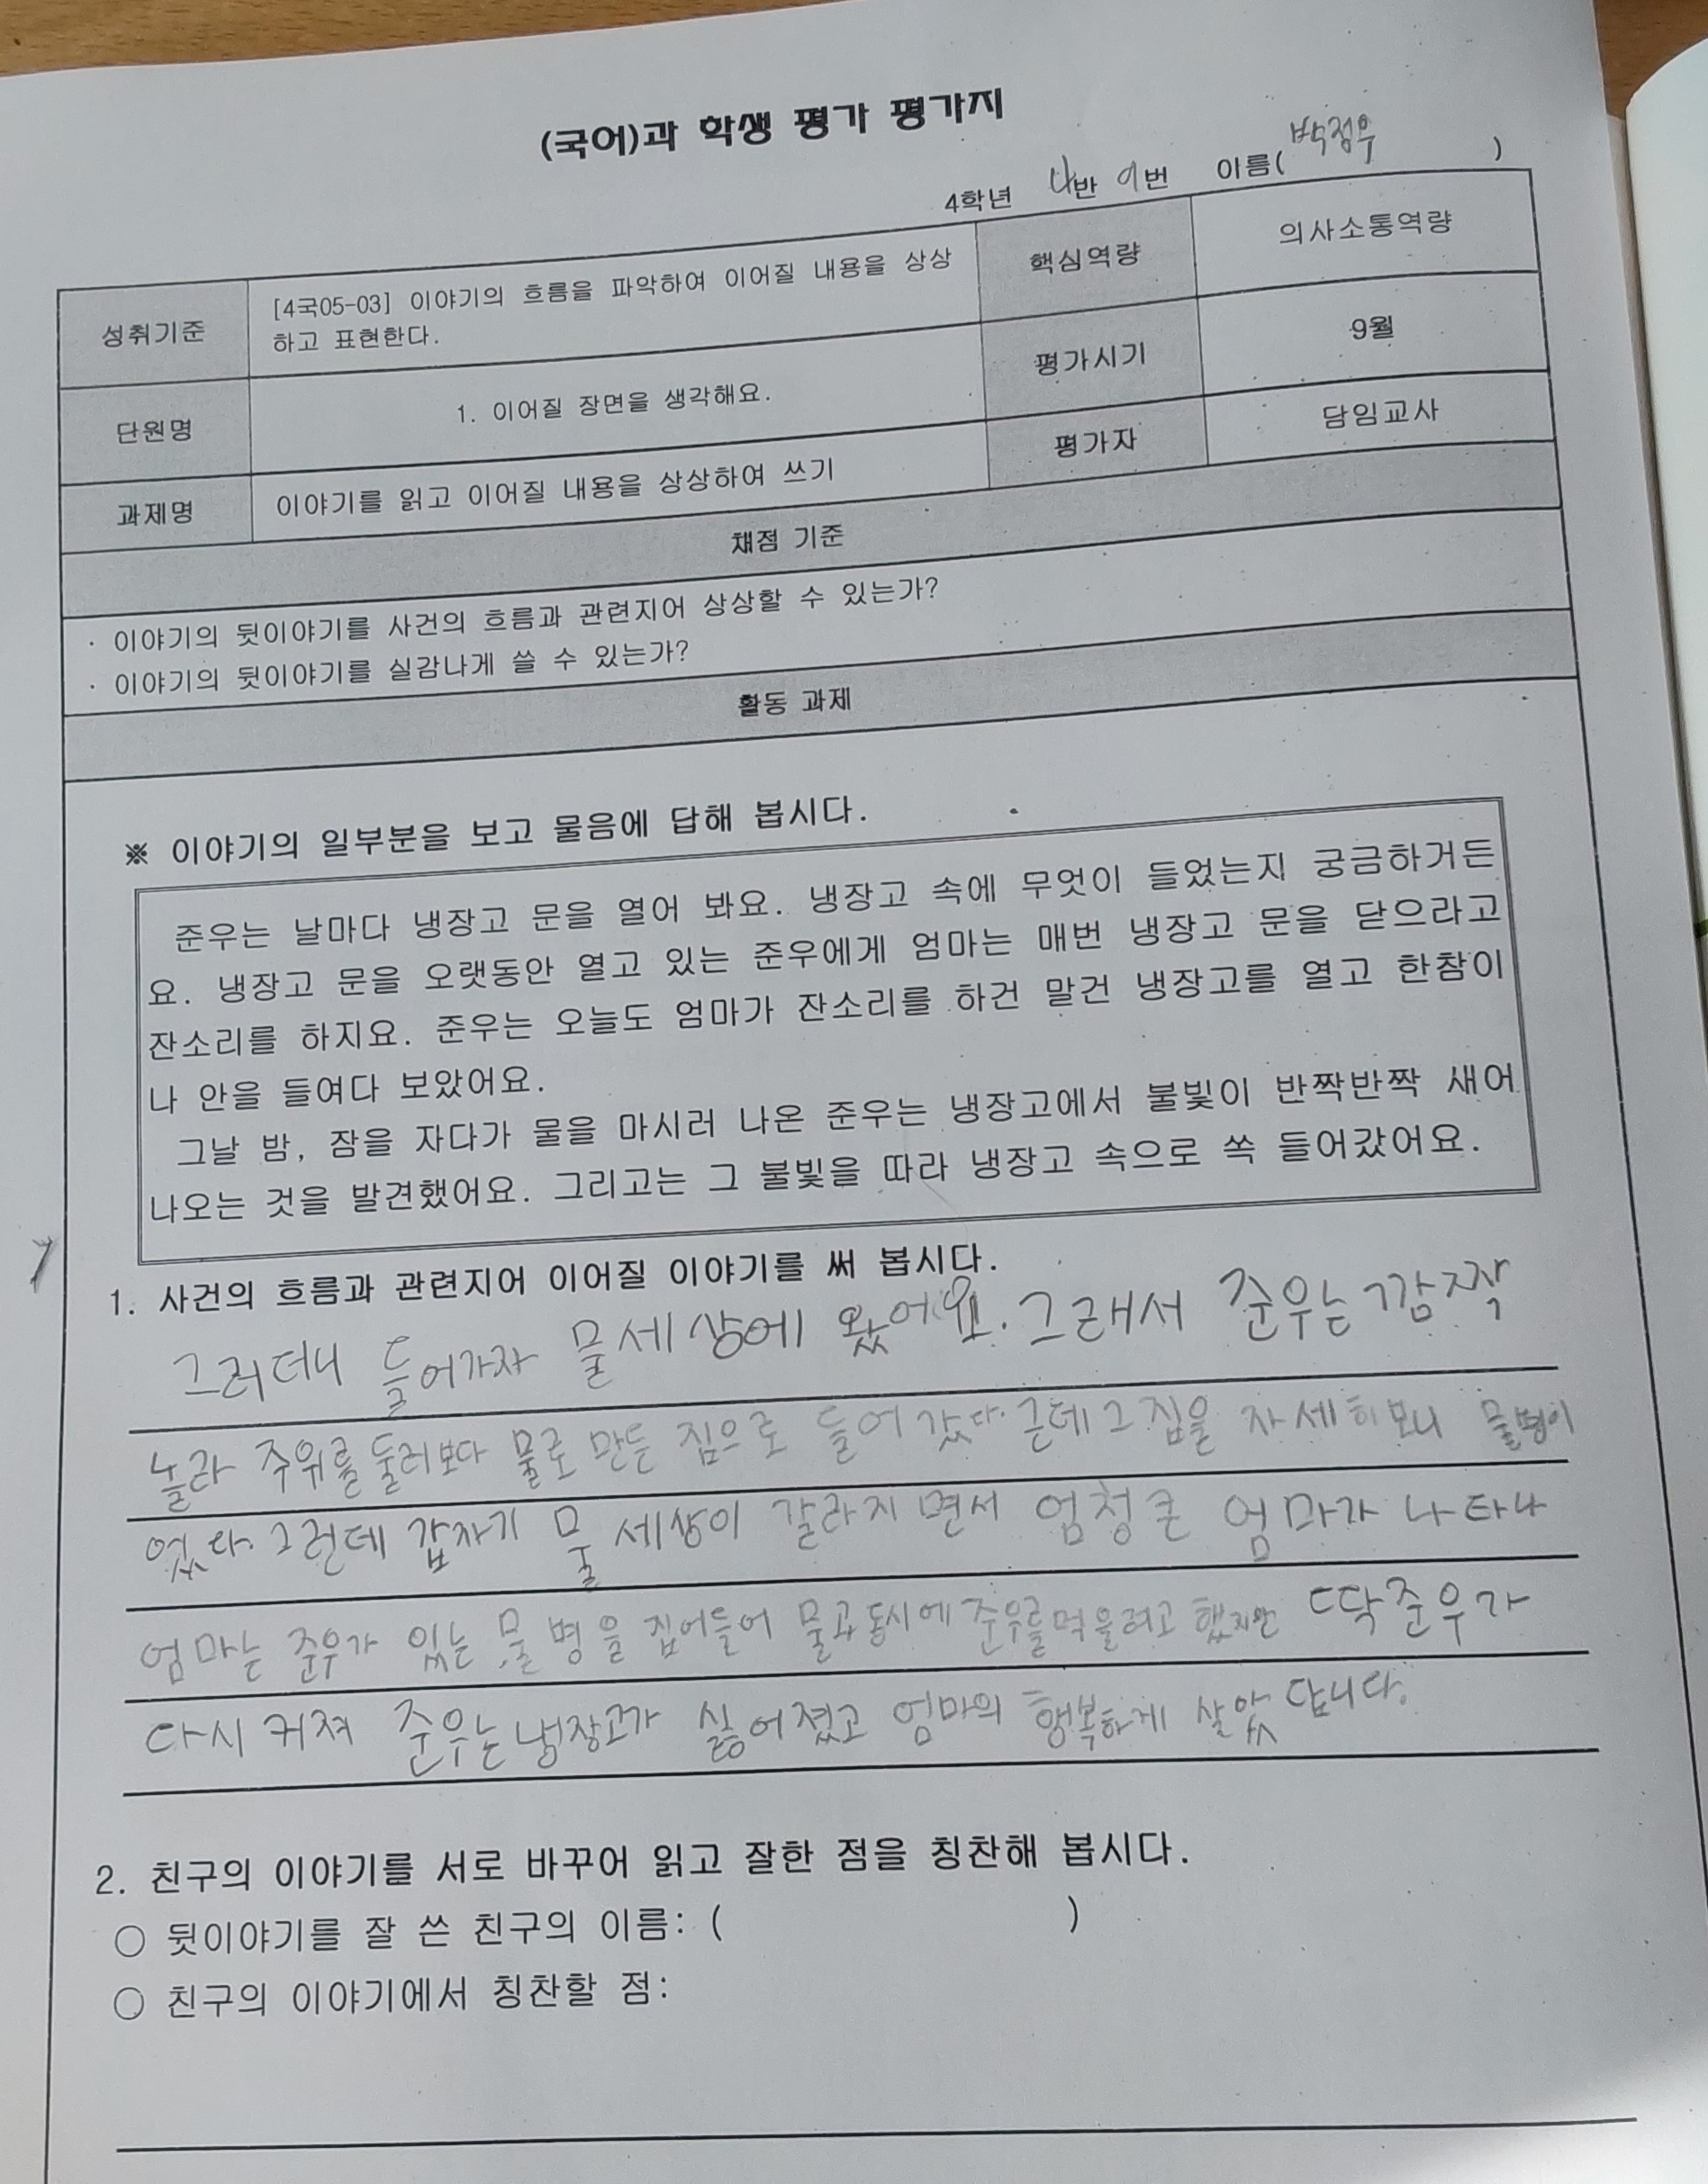 (국어)과 학생 평가 평가지
4학년 나반 이번 이름( 박정우 )
성취기준
[4국05-03] 이야기의 흐름을 파악하여 이어질 내용을 상상
하고 표현한다.
핵심역량
의사소통역량
단원명
1. 이어질 장면을 생각해요.
평가시기
9월
과제명
이야기를 읽고 이어질 내용을 상상하여 쓰기
평가자
담임교사
채점 기준
· 이야기의 뒷이야기를 사건의 흐름과 관련지어 상상할 수 있는가?
· 이야기의 뒷이야기를 실감나게 쓸 수 있는가?
활동 과제
※ 이야기의 일부분을 보고 물음에 답해 봅시다.
준우는 날마다 냉장고 문을 열어 봐요. 냉장고 속에 무엇이 들었는지 궁금하거든
요. 냉장고 문을 오랫동안 열고 있는 준우에게 엄마는 매번 냉장고 문을 닫으라고
잔소리를 하지요. 준우는 오늘도 엄마가 잔소리를 하건 말건 냉장고를 열고 한참이
나 안을 들여다 보았어요.
그날 밤, 잠을 자다가 물을 마시러 나온 준우는 냉장고에서 불빛이 반짝반짝 새어
나오는 것을 발견했어요. 그리고는 그 불빛을 따라 냉장고 속으로 쏙 들어갔어요.
1. 사건의 흐름과 관련지어 이어질 이야기를 써 봅시다.
그러더니 들어가자 물세상에 왔어요. 그래서 준우는 깜짝
놀라 주위를 둘러보다 물로 만든 집으로 들어 갔다. 근데 그 집을 자세히보니 물병이
였다. 그런데 갑자기 물 세상이 갈라지면서 엄청큰 엄마가 나타나
엄마는 준우가 있는 물병을 집어들어 물과 동시에 준우를 먹을려고 했지만 딱 준우가
다시 커져 준우는 냉장고가 싫어졌고 엄마의 행복하게 살았답니다.
2. 친구의 이야기를 서로 바꾸어 읽고 잘한 점을 칭찬해 봅시다.
○ 뒷이야기를 잘 쓴 친구의 이름: ( )
○ 친구의 이야기에서 칭찬할 점: